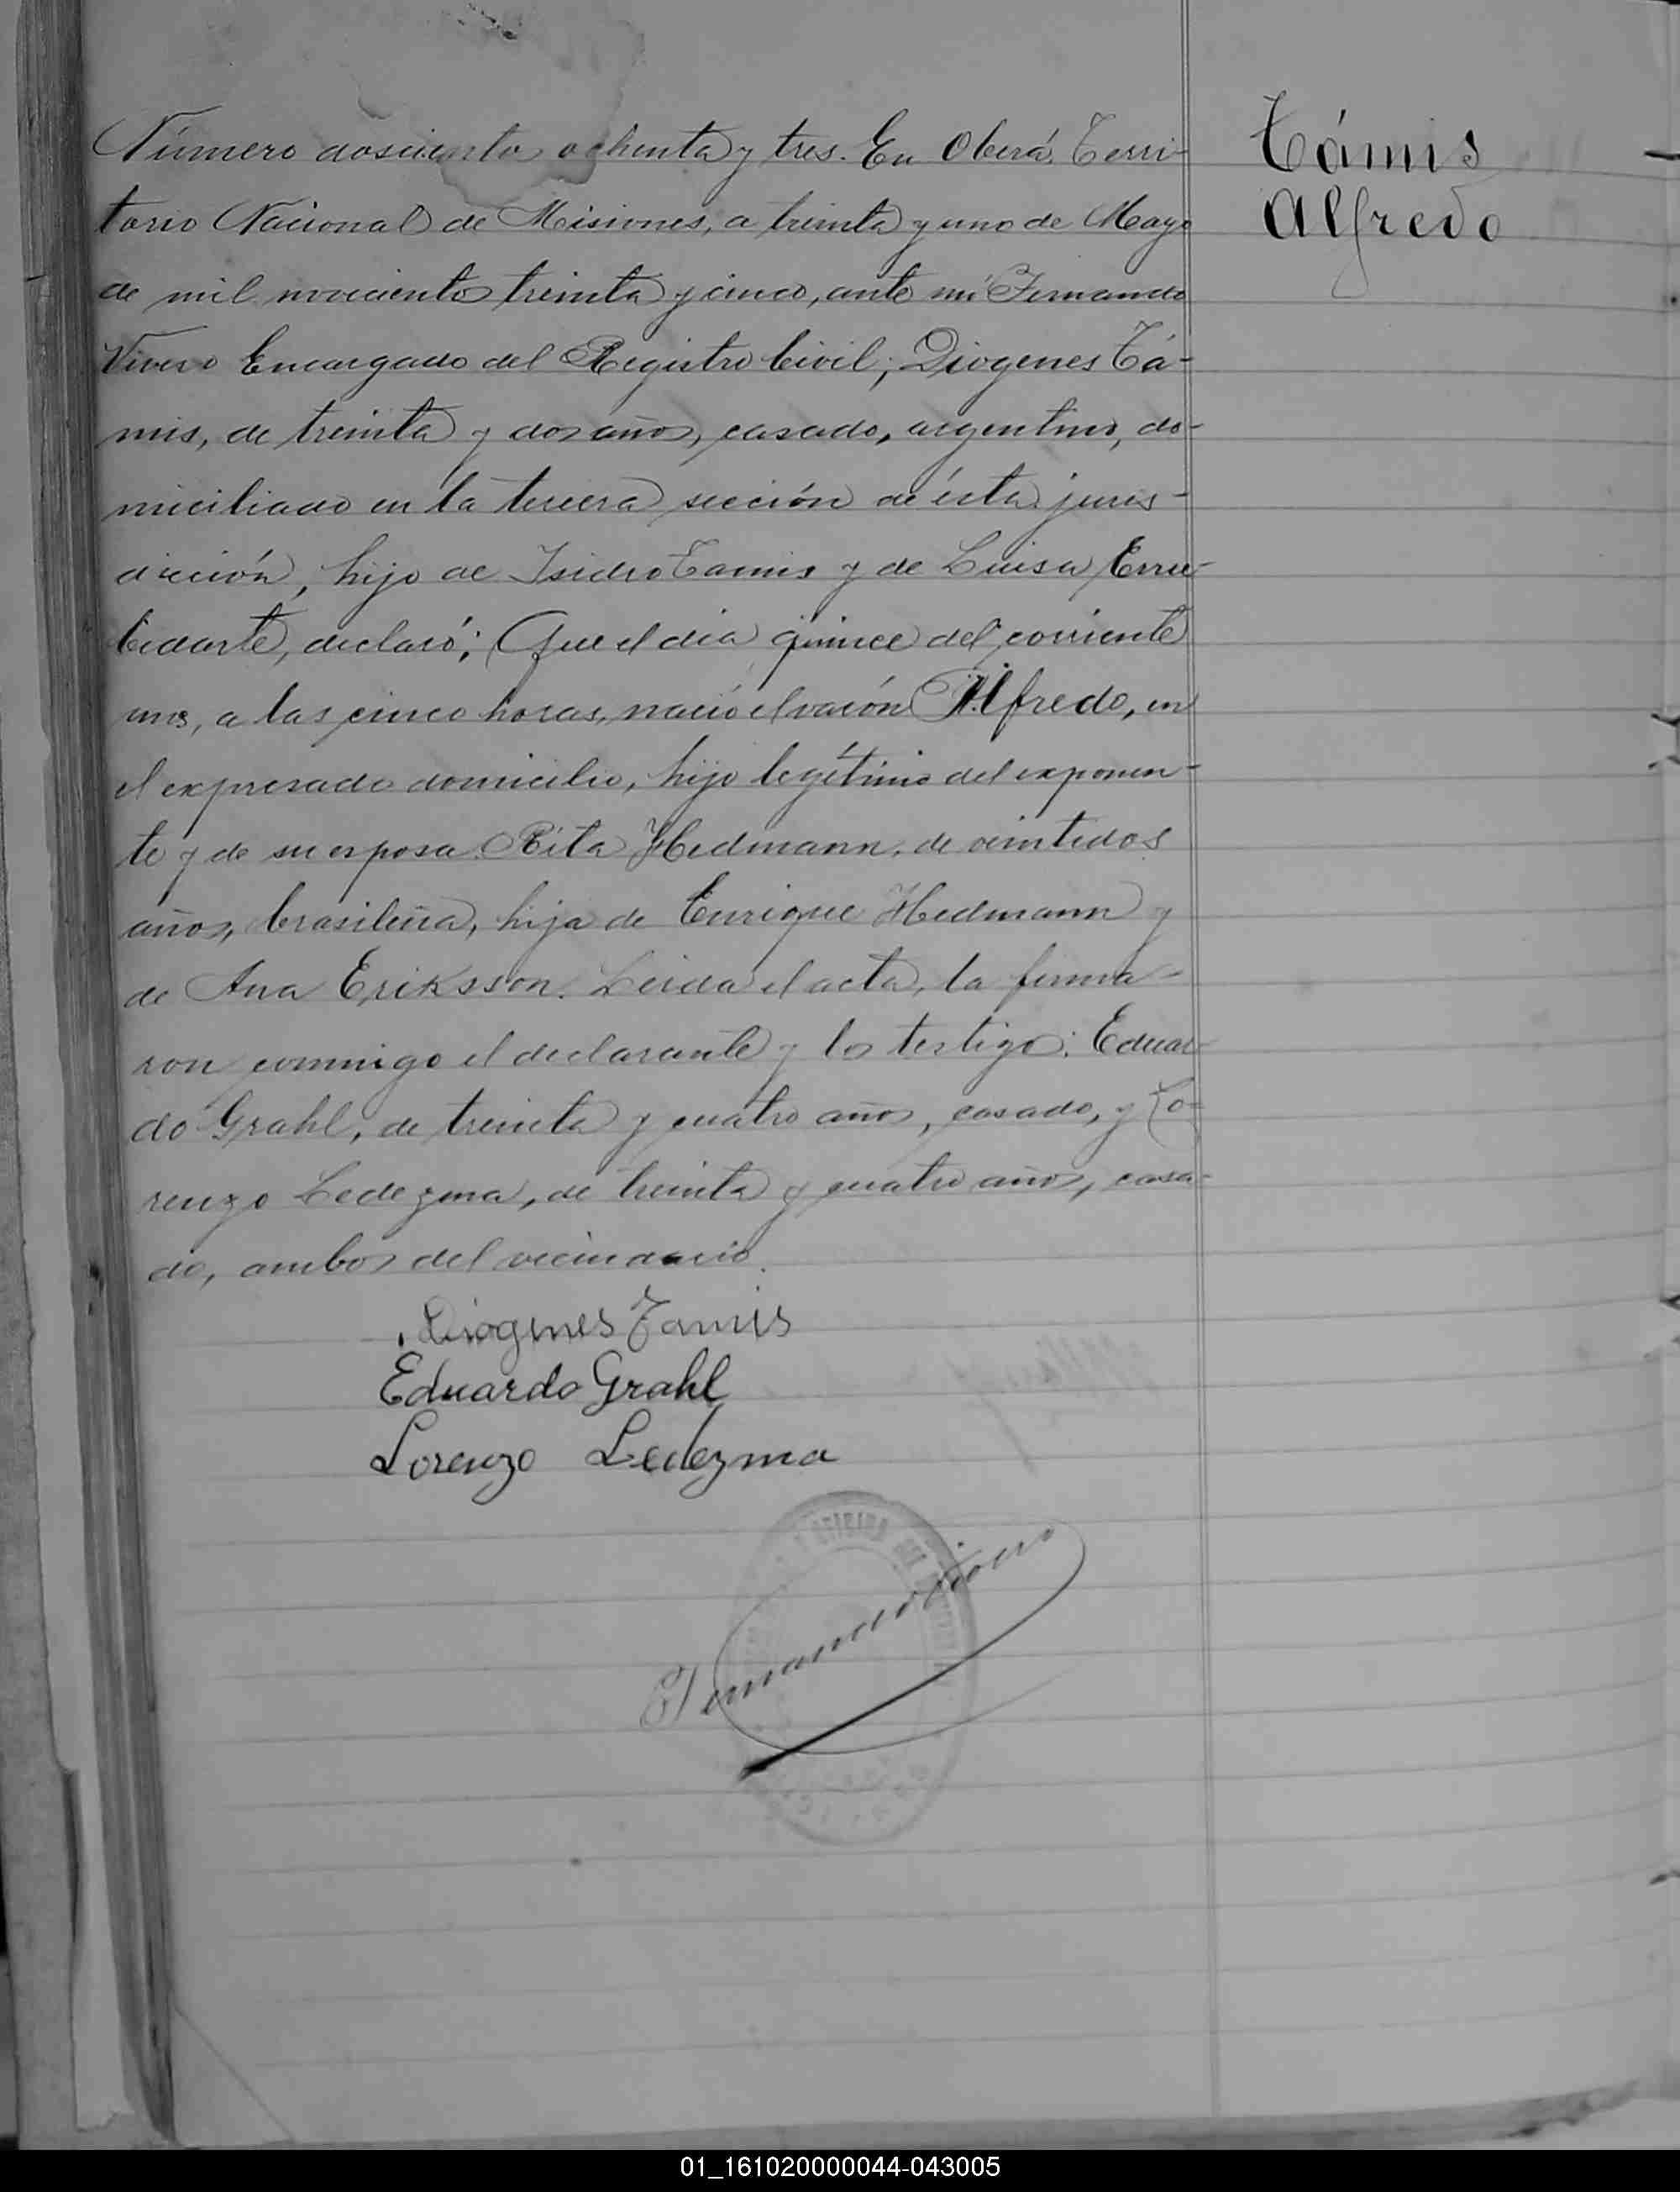 Número dosciento ochenta y tres. En Oberá, Terri-
torio Nacional de Misiones, a treinta y uno de Mayo
de mil noveciento treinta y cinco, ante mí Fernando
Vivero Encargado del Registro Civil; Diogenes Tá-
mis, de treinta y dos años, casado, argentino, do-
miciliado en la tercera sección de ésta juris-
dicción, hijo de Isidro Tamis y de Luisa Erru-
bidarte, declaró; Que el día quince del corriente
mes, a las cinco horas, nació el varón Alfredo, en
el expresado domicilio, hijo legítimo del exponen-
te y de su esposa Rita Hedmann, de veintidos
años, brasileña, hija de Enrique Hedmann y
de Ana Eriksson. Leída el acta, la firma-
ron conmigo el declarante y los testigos: Eduar-
do Grahl, de treinta y cuatro años, casado, y Lo-
renzo Ledezma, de treinta y cuatro años, casa-
do, ambos del vecindario.
Diogenes Tamis
Eduardo Grahl
Lorenzo Ledezma
Fernando Vivero
Támis
Alfredo
01_161020000044-043005